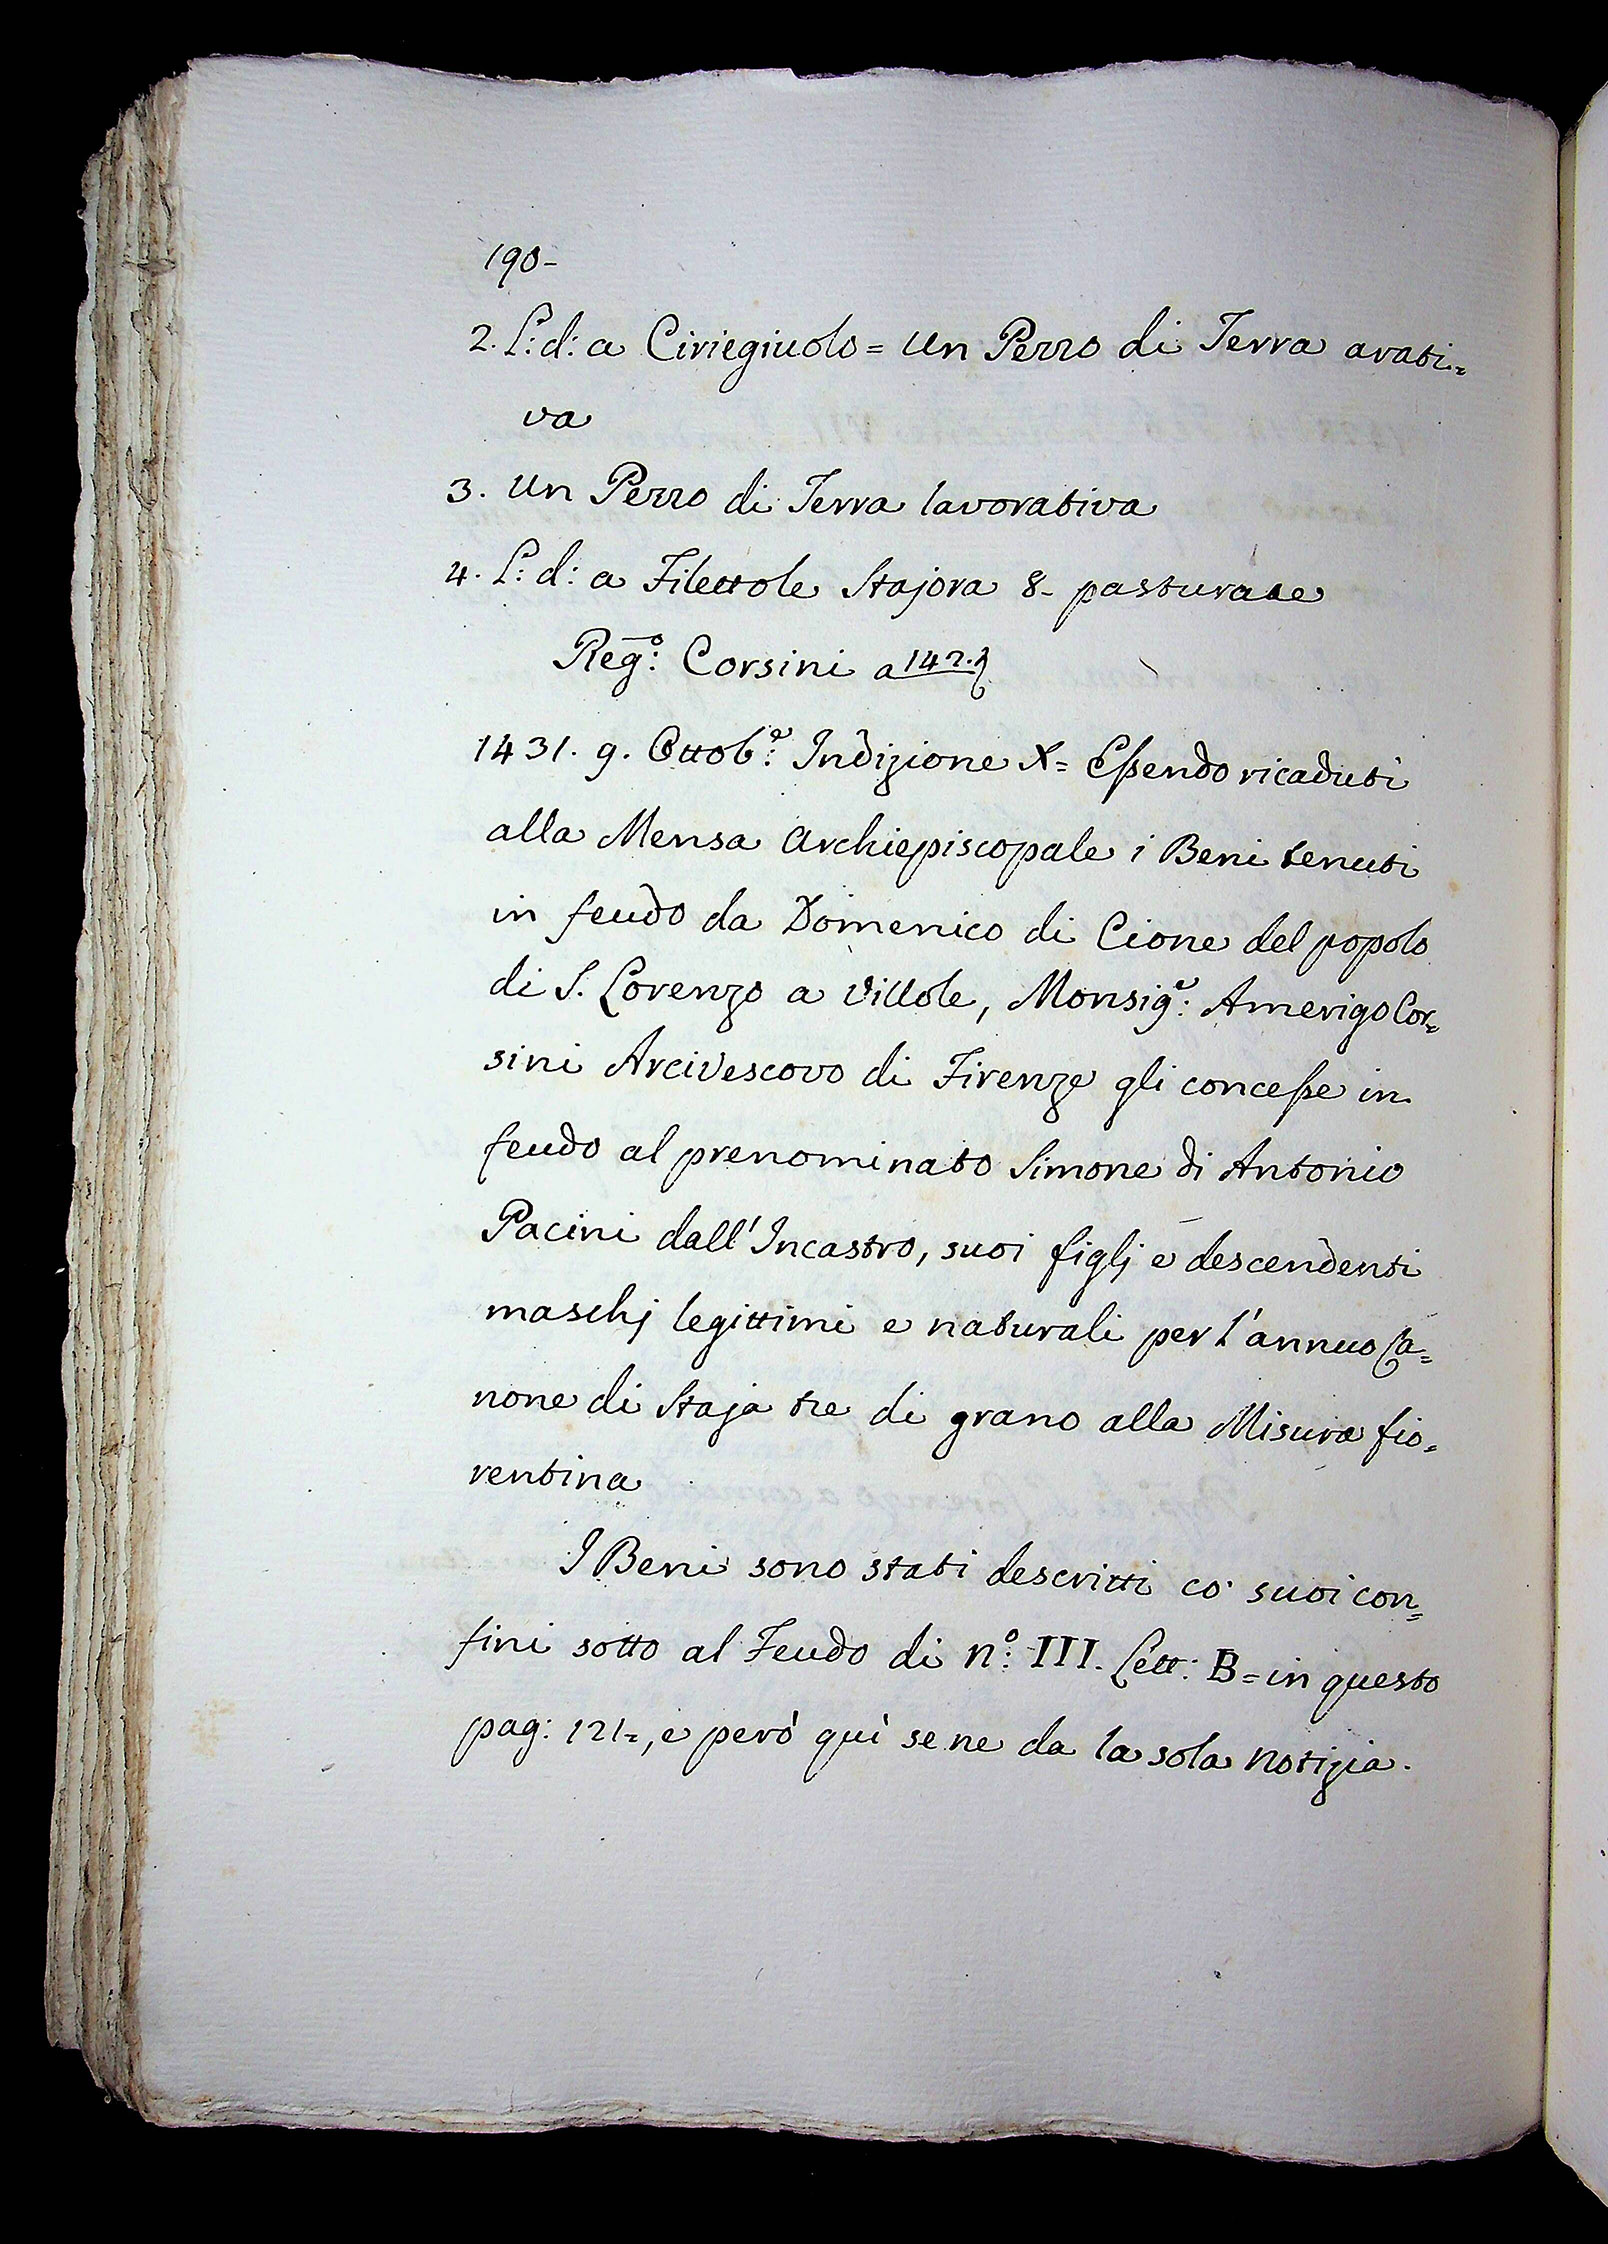 190-
2. L: d: a Ciriegiuolo = un Pezzo di Terra arati=
va
3. un Pezzo di Terra lavorativa
4. L: d: a Filettole Stajora 8- pasturate
Reg:º Corsini a 142.
1431. 9. Ottob:e Indizione X= Essendo ricaduti
alla Mensa Archiepiscopale i Beni tenuti
in feudo da Domenico di Cione del popolo
di S. Lorenzo a Villole, Monsig:e Amerigo Cor=
sini Arcivescovo di Firenze gli concesse in
feudo al prenominato Simone di Antonio
Pacini dall'Incastro, suoi figlj e descendenti
maschj legittimi e naturali per l'annuo Ca=
none di Staja tre di grano alla Misura fio=
rentina
I Beni sono stati descritti co' suoi con=
fini sotto al Feudo di nº: III. Lett: B= in questo
pag: 121=, e però quì se ne da la sola notizia.